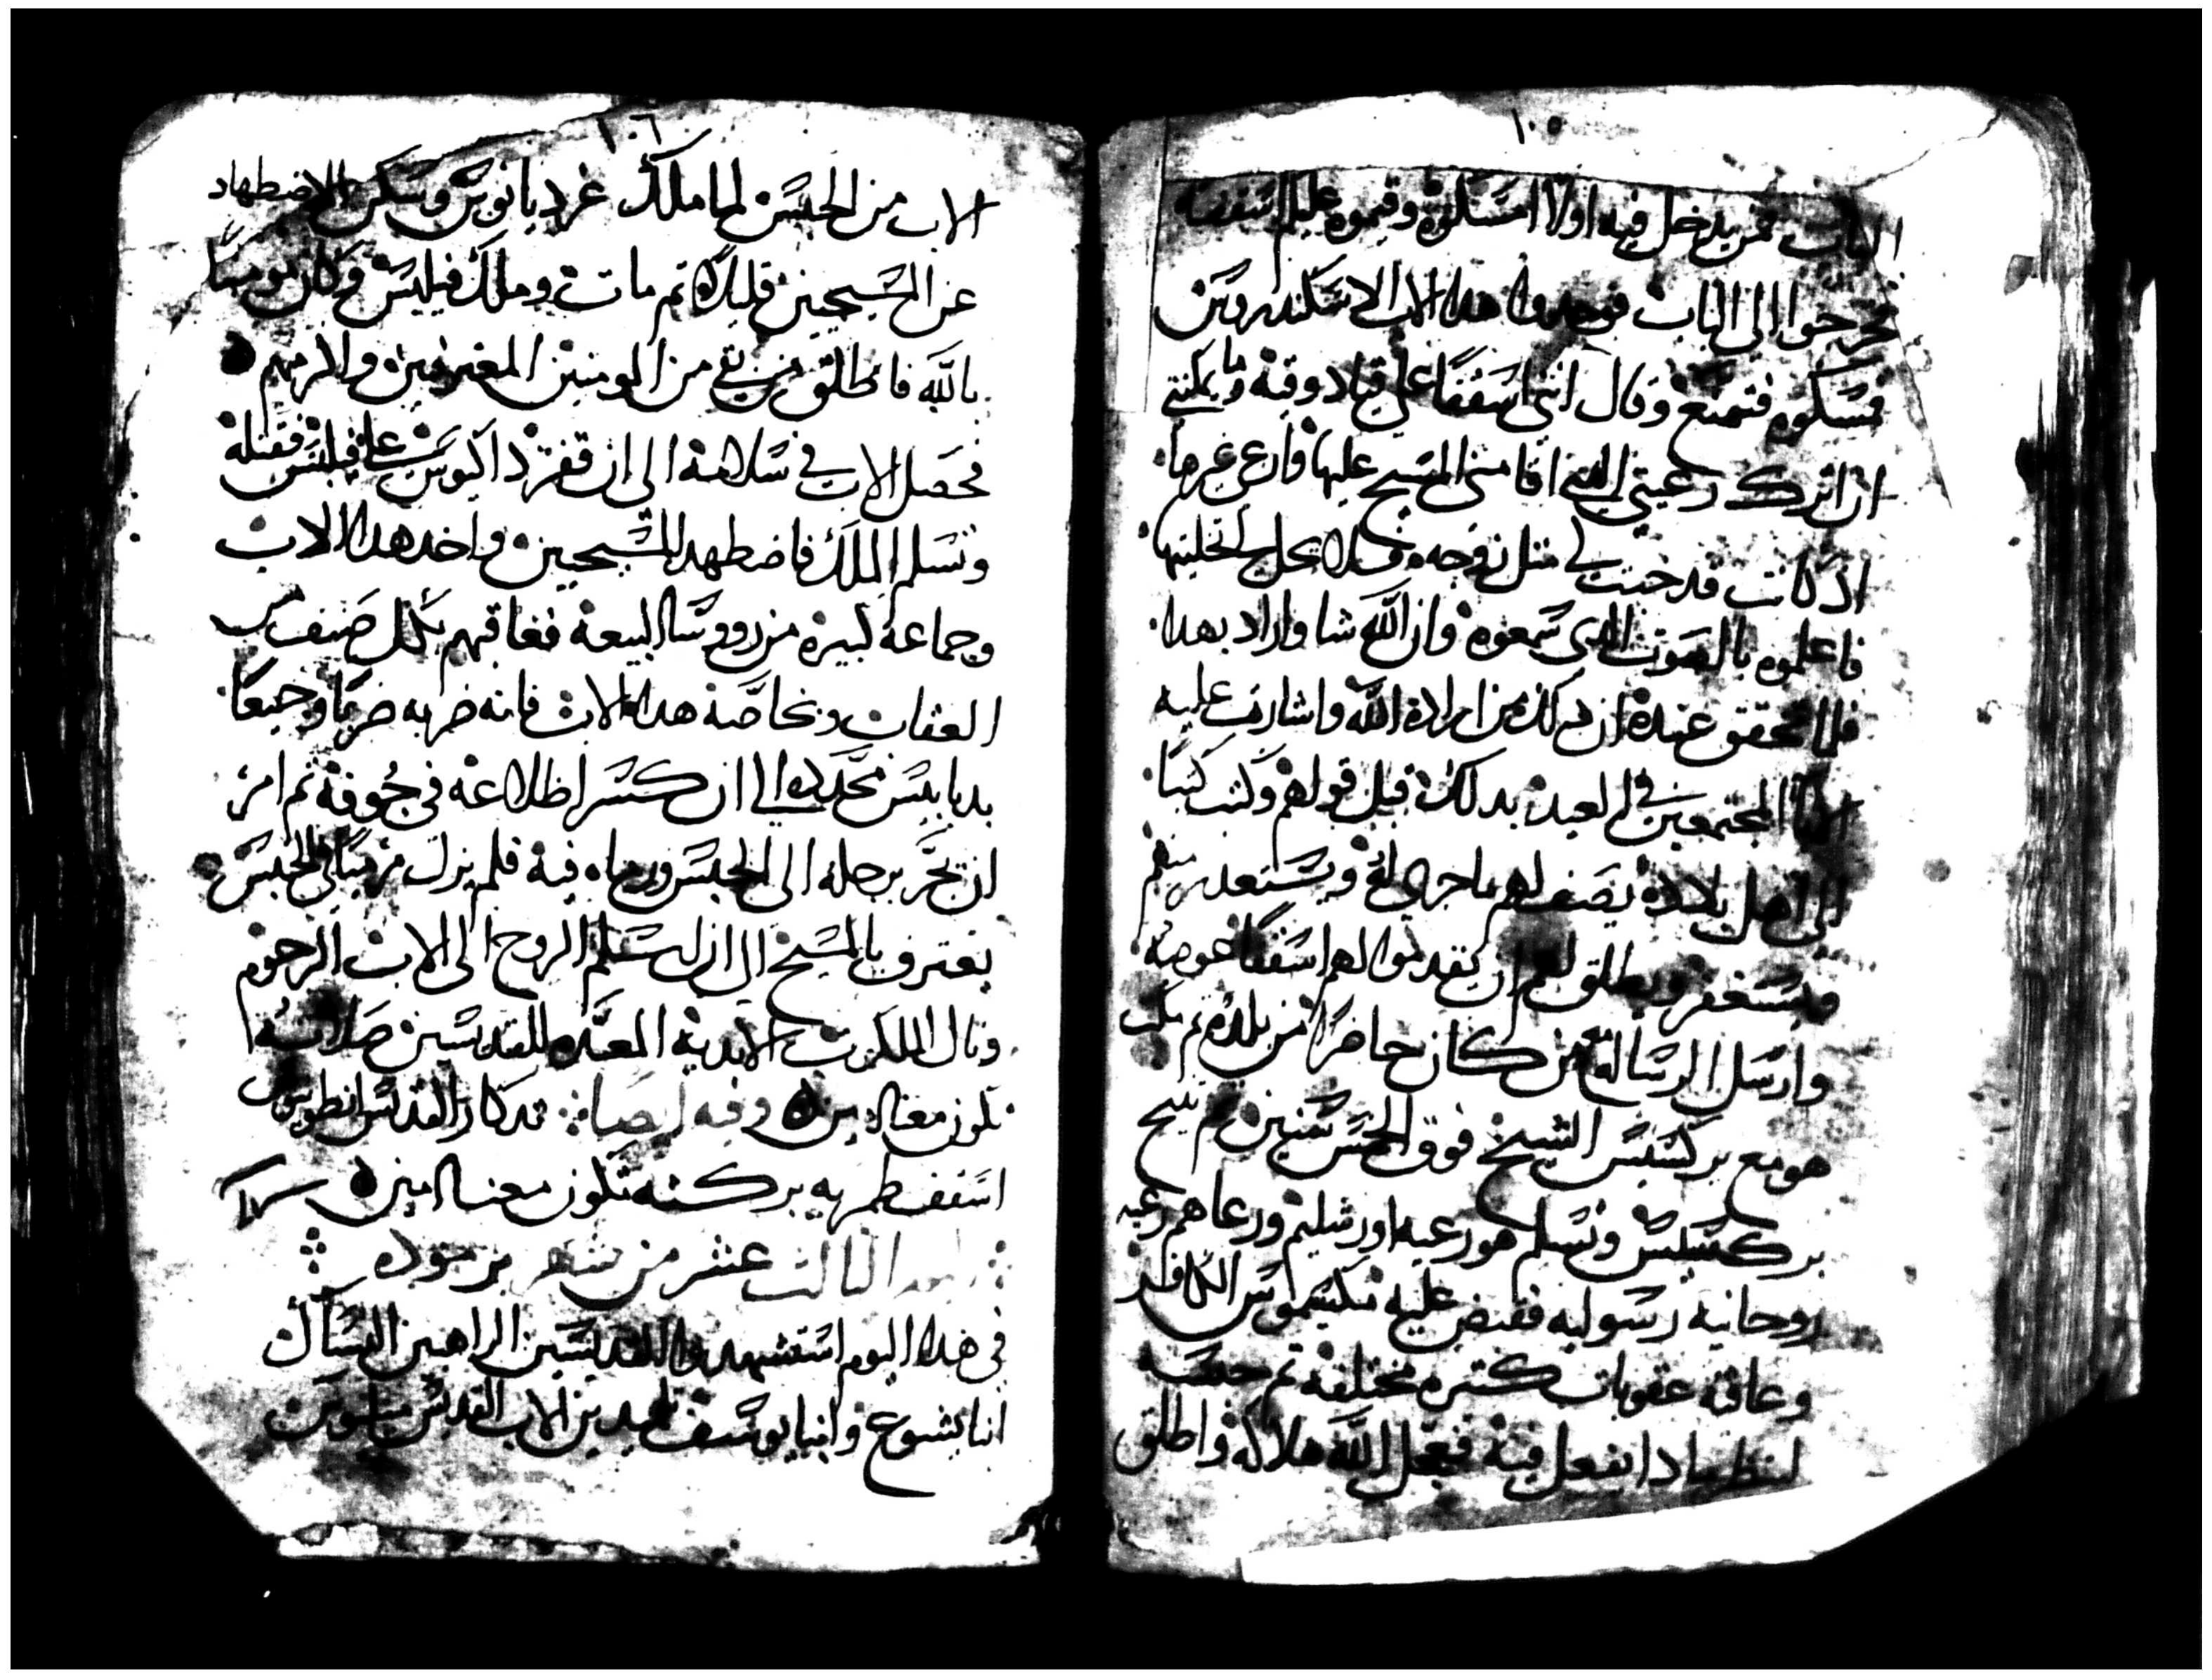 ١٠٥
الباب فمن يدخل فيه اولا امسكوه وقيموه عليكم اسقفا
فخرجوا الى الباب فوجدوا هدا الاب الاسكندروس
فمسكوه فتمنع وقال انني اسقفا على قبادوقيه وما يمكنني
ان اترك رعيتي التي اقامني المسيح عليها وارعى غيرها
اد كانت قد حبست لي متل زوجه ولا يحل لي تخليتها
فاعلموه بالصوت الدى سمعوه وان الله شا واراد بهدا
فلما تحقق عنده ان دلك من ارادة الله واشارت عليه
الابا المجتمعين في العيد بدلك قبل قولهم وكتب كتبا
الى اهل بلاده يصف لهم ما جرى له ويستعدر منهم
ويستغفر ويطلق لهم ان يقدموا لهم اسقفا عوضه
وارسل الرسالة مع من كان حاضرا من بلده تم مكت
هو مع بركسيس الشيخ فوق الخمس سنين تم تنيح
بركسيس وتسلم هو رعية اورشليم ورعاهم رعيه
روحانيه رسوليه فقبض عليه مكسيموس الكافر
وعاقبه عقوبات كتيره مختلفه تم حبسه
لينظر مادا يفعل فيه فعجل الله هلاكه واطلق
١٠٦
الاب من الحبس لما ملك غرديانوس وسكن الاضطهاد
عن المسيحيين قليلا تم مات وملك فيلبس وكان مومنا
بالله فاطلق من بقي من المومنين المعترفين واكرمهم
فحصل الاب في سلامة الى ان قفز داكيوس على فيلبس فقتله
وتسلم الملك فاضطهد المسيحيين واخد هدا الاب
وجماعة كبيره من رووسا البيعة فعاقبهم بكل صنف من
العقاب وبخاصة هدا الاب فانه ضربه ضربا وجيعا
بدبابيس محدده الى ان كسر اضلاعه في جوفه تم امر
ان يجر برجله الى الحبس ورماه فيه فلم يزل مرميا في الحبس
يعترف بالمسيح الى ان اسلم الروح الى الاب الرحوم
ونال الملكوت الابدية المعده للقديسين صلاته
تكون معنا امين وفيه ايضا تدكار القديس انطونيوس
اسقف طمويه بركته تكون معنا امين
اليوم التالت عشر من شهر برموده
في هدا اليوم استشهدوا القديسين الراهبين النساك
انبا يشوع وانبا يوسف تلاميد الاب القديس ميليوس